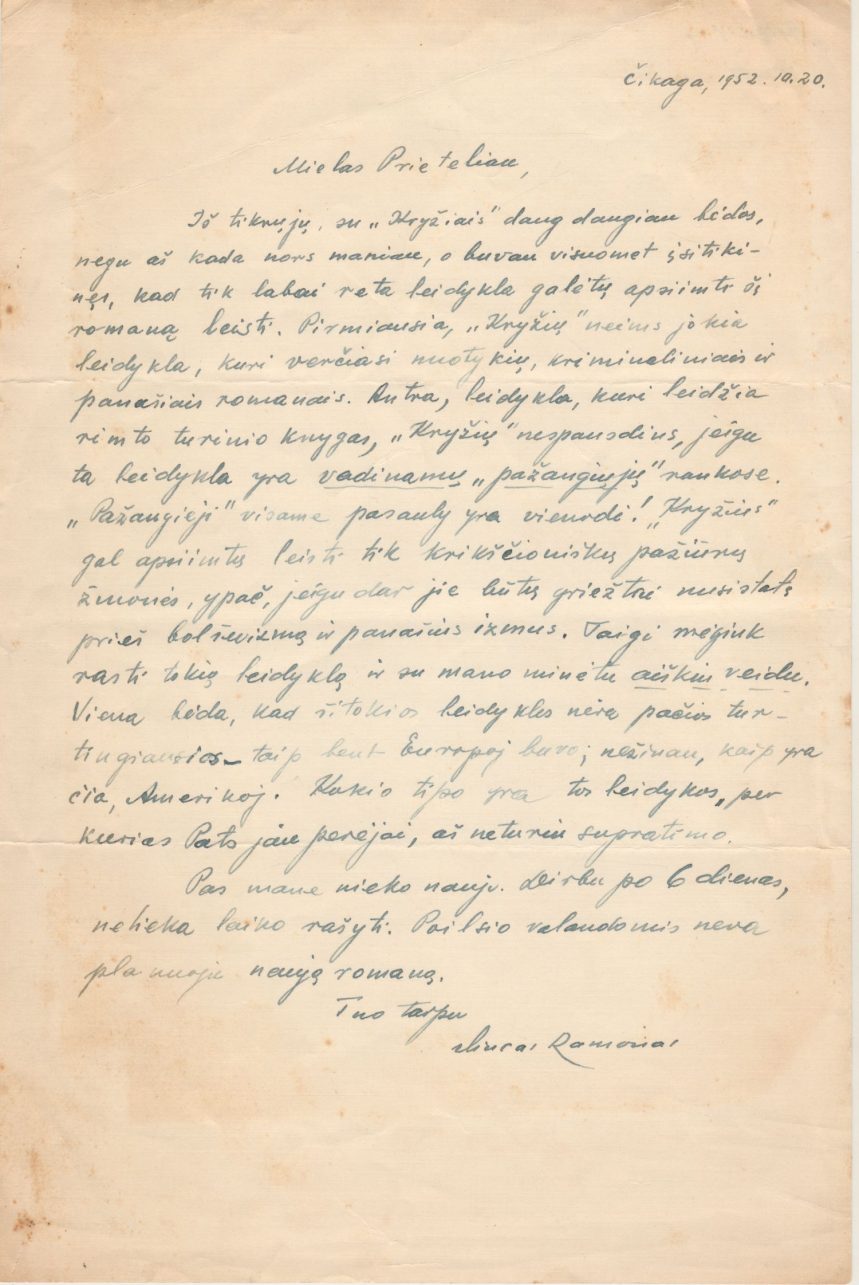 Čikaga, 1952.10.20.
Mielas Prieteliau,
Iš tikrųjų, su „Kryžiais" daug daugiau bėdos,
negu aš kada nors maniau, o buvau visuomet įsitiki-
nęs, kad tik labai reta leidykla galėtų apsiimti šį
romaną leisti. Pirmiausia, „Kryžių" neims jokia
leidykla, kuri verčiasi nuotykių, kriminaliniais ir
panašiais romanais. Antra, leidykla, kuri leidžia
rimto turinio knygas, „Kryžių" nespausdins, jeigu
ta leidykla yra vadinamų „pažangiųjų" rankose.
„Pažangieji" visame pasauly yra vienodi! „Kryžius"
gal apsiimtų leisti tik krikščioniškų pažiūrų
žmonės, ypač, jeigu dar jie būtų griežtai nusistatę
prieš bolševizmą ir panašius izmus. Taigi mėgink
rasti tokią leidyklą ir su mano minėtu aiškiu veidu.
Viena bėda, kad šitokios leidyklos nėra pačios tur-
tingiausios – taip bent Europoj buvo; nežinau, kaip yra
čia, Amerikoj. Kokio tipo yra tos leidykos, per
kurias Pats jau perėjai, aš neturiu supratimo.
Pas mane nieko naujo. Dirbu po 6 dienas,
nelieka laiko rašyti. Poilsio valandomis
planuoju naują romaną.
Tuo tarpu
Ramonas